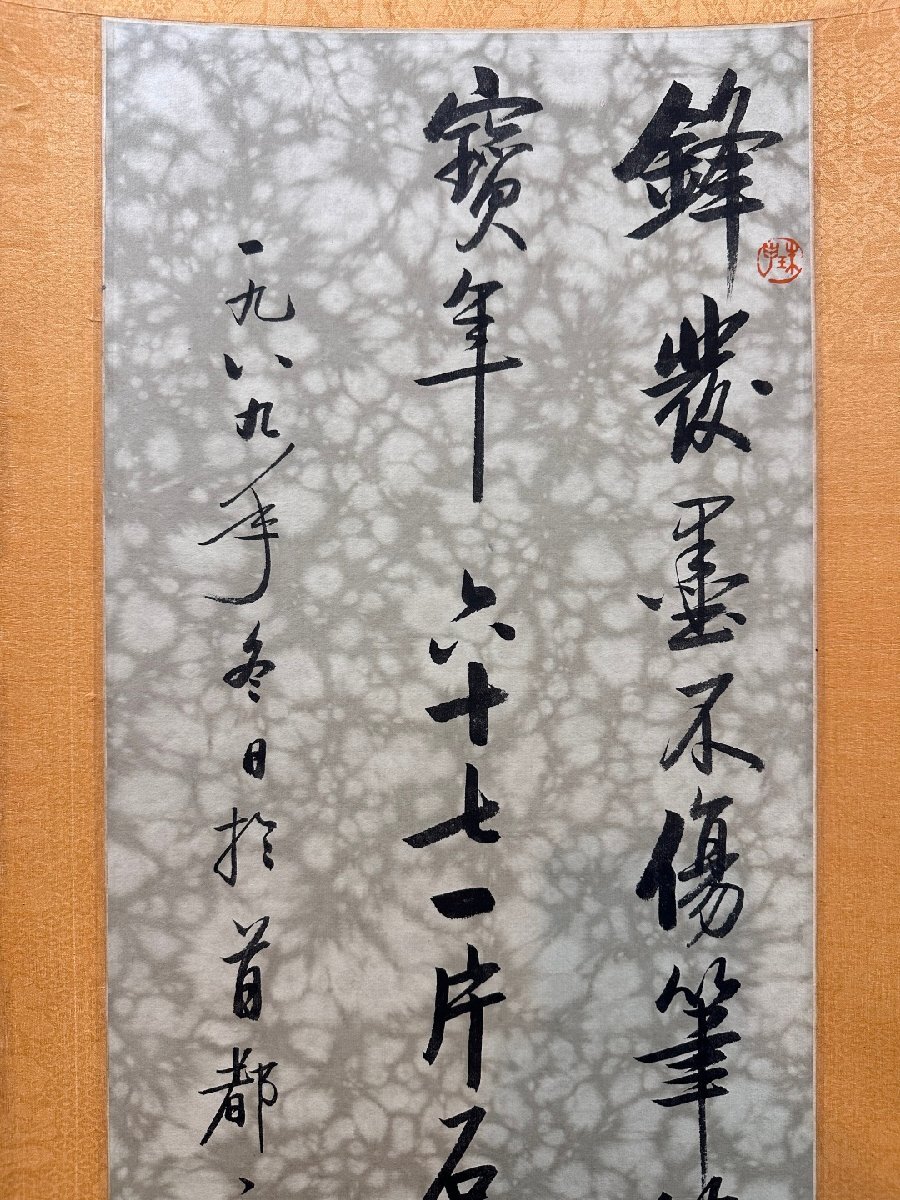 鋒發墨不傷筆
寶年六十七一片石
一九八九年冬日於首都